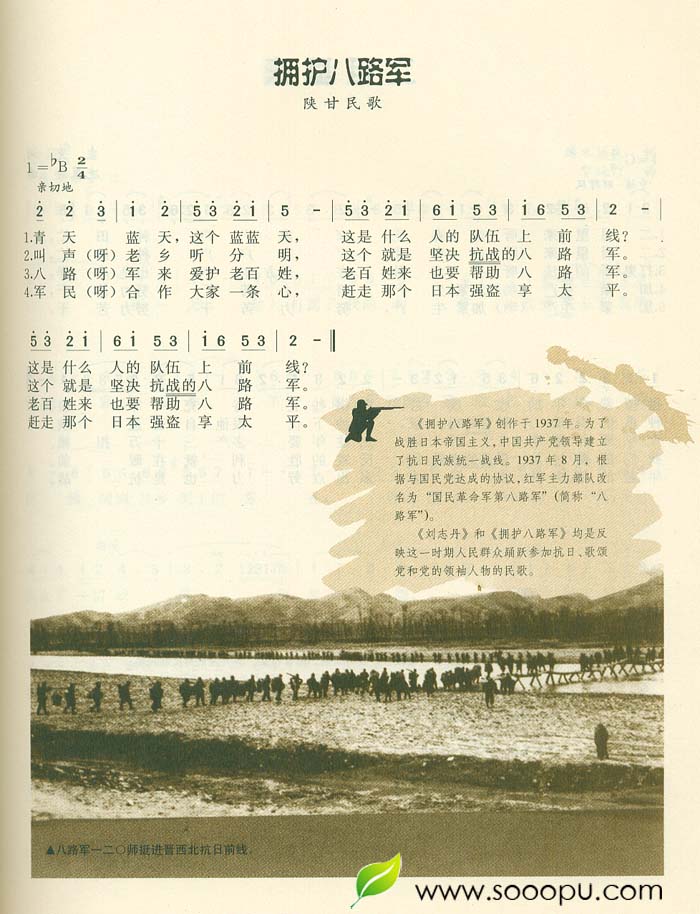 拥护八路军
陕甘民歌
1=♭B 2/4
亲切地
2̇ 2̇ 3̇ | 1̇ 2̇ 5̇3̇ 2̇1̇ | 5 - | 5̇3̇ 2̇1̇ | 61̇ 5̇3̇ | 1̇6 53 | 2 - |
1.青 天 蓝 天,这个 蓝蓝 天, 这是 什么 人的 队伍 上 前 线?
2.叫 声(呀)老 乡 听 分 明, 这个 就是 坚决 抗战的八 路 军。
3.八 路(呀)军 来 爱护 老百 姓, 老百 姓来 也要 帮助 八 路 军。
4.军 民(呀)合 作 大家 一条 心, 赶走 那个 日本 强盗 享 太 平。
5̇3̇ 2̇1̇ | 61̇ 5̇3̇ | 1̇6 53 | 2 - ‖
这是 什么 人的 队伍 上 前 线?
这个 就是 坚决 抗战的八 路 军。
老百 姓来 也要 帮助 八 路 军。
赶走 那个 日本 强盗 享 太 平。
《拥护八路军》创作于1937年。为了
战胜日本帝国主义,中国共产党领导建立
了抗日民族统一战线。1937年8月,根
据与国民党达成的协议,红军主力部队改
名为“国民革命军第八路军”(简称“八
路军”)。
《刘志丹》和《拥护八路军》均是反
映这一时期人民群众踊跃参加抗日、歌颂
党和党的领袖人物的民歌。
▲八路军一二〇师挺进晋西北抗日前线.
www.sooopu.com